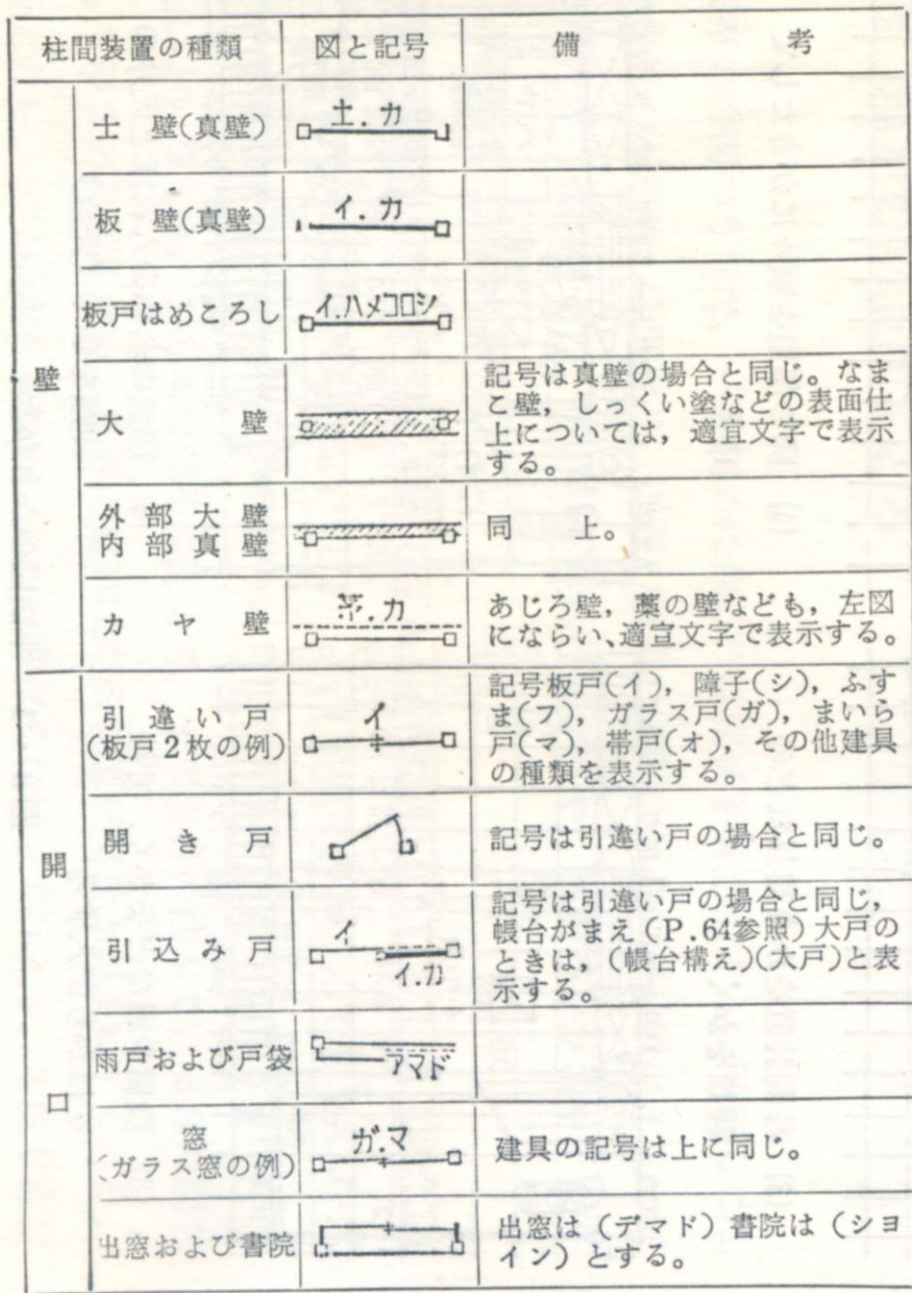 柱間装置の種類 図と記号 備考
壁
土壁(真壁) 土.カ
板壁(真壁) イ.カ
板戸はめころし イ.ハメコロシ
大壁
記号は真壁の場合と同じ。なま
こ壁，しっくい塗などの表面仕
上については，適宜文字で表示
する。
外部大壁
内部真壁
同上。
カヤ壁 茅.カ
あじろ壁，藁の壁なども，左図
にならい、適宜文字で表示する。
開口
引違い戸
(板戸2枚の例)
イ
記号板戸(イ)，障子(シ)，ふす
ま(フ)，ガラス戸(ガ)，まいら
戸(マ)，帯戸(オ)，その他建具
の種類を表示する。
開き戸
記号は引違い戸の場合と同じ。
引込み戸
イ
イ.カ
記号は引違い戸の場合と同じ，
帳台がまえ(P.64参照)大戸の
ときは，(帳台構え)(大戸)と表
示する。
雨戸および戸袋 アマド
窓
(ガラス窓の例)
ガ.マ
建具の記号は上に同じ。
出窓および書院
出窓は(デマド)書院は(ショ
イン)とする。